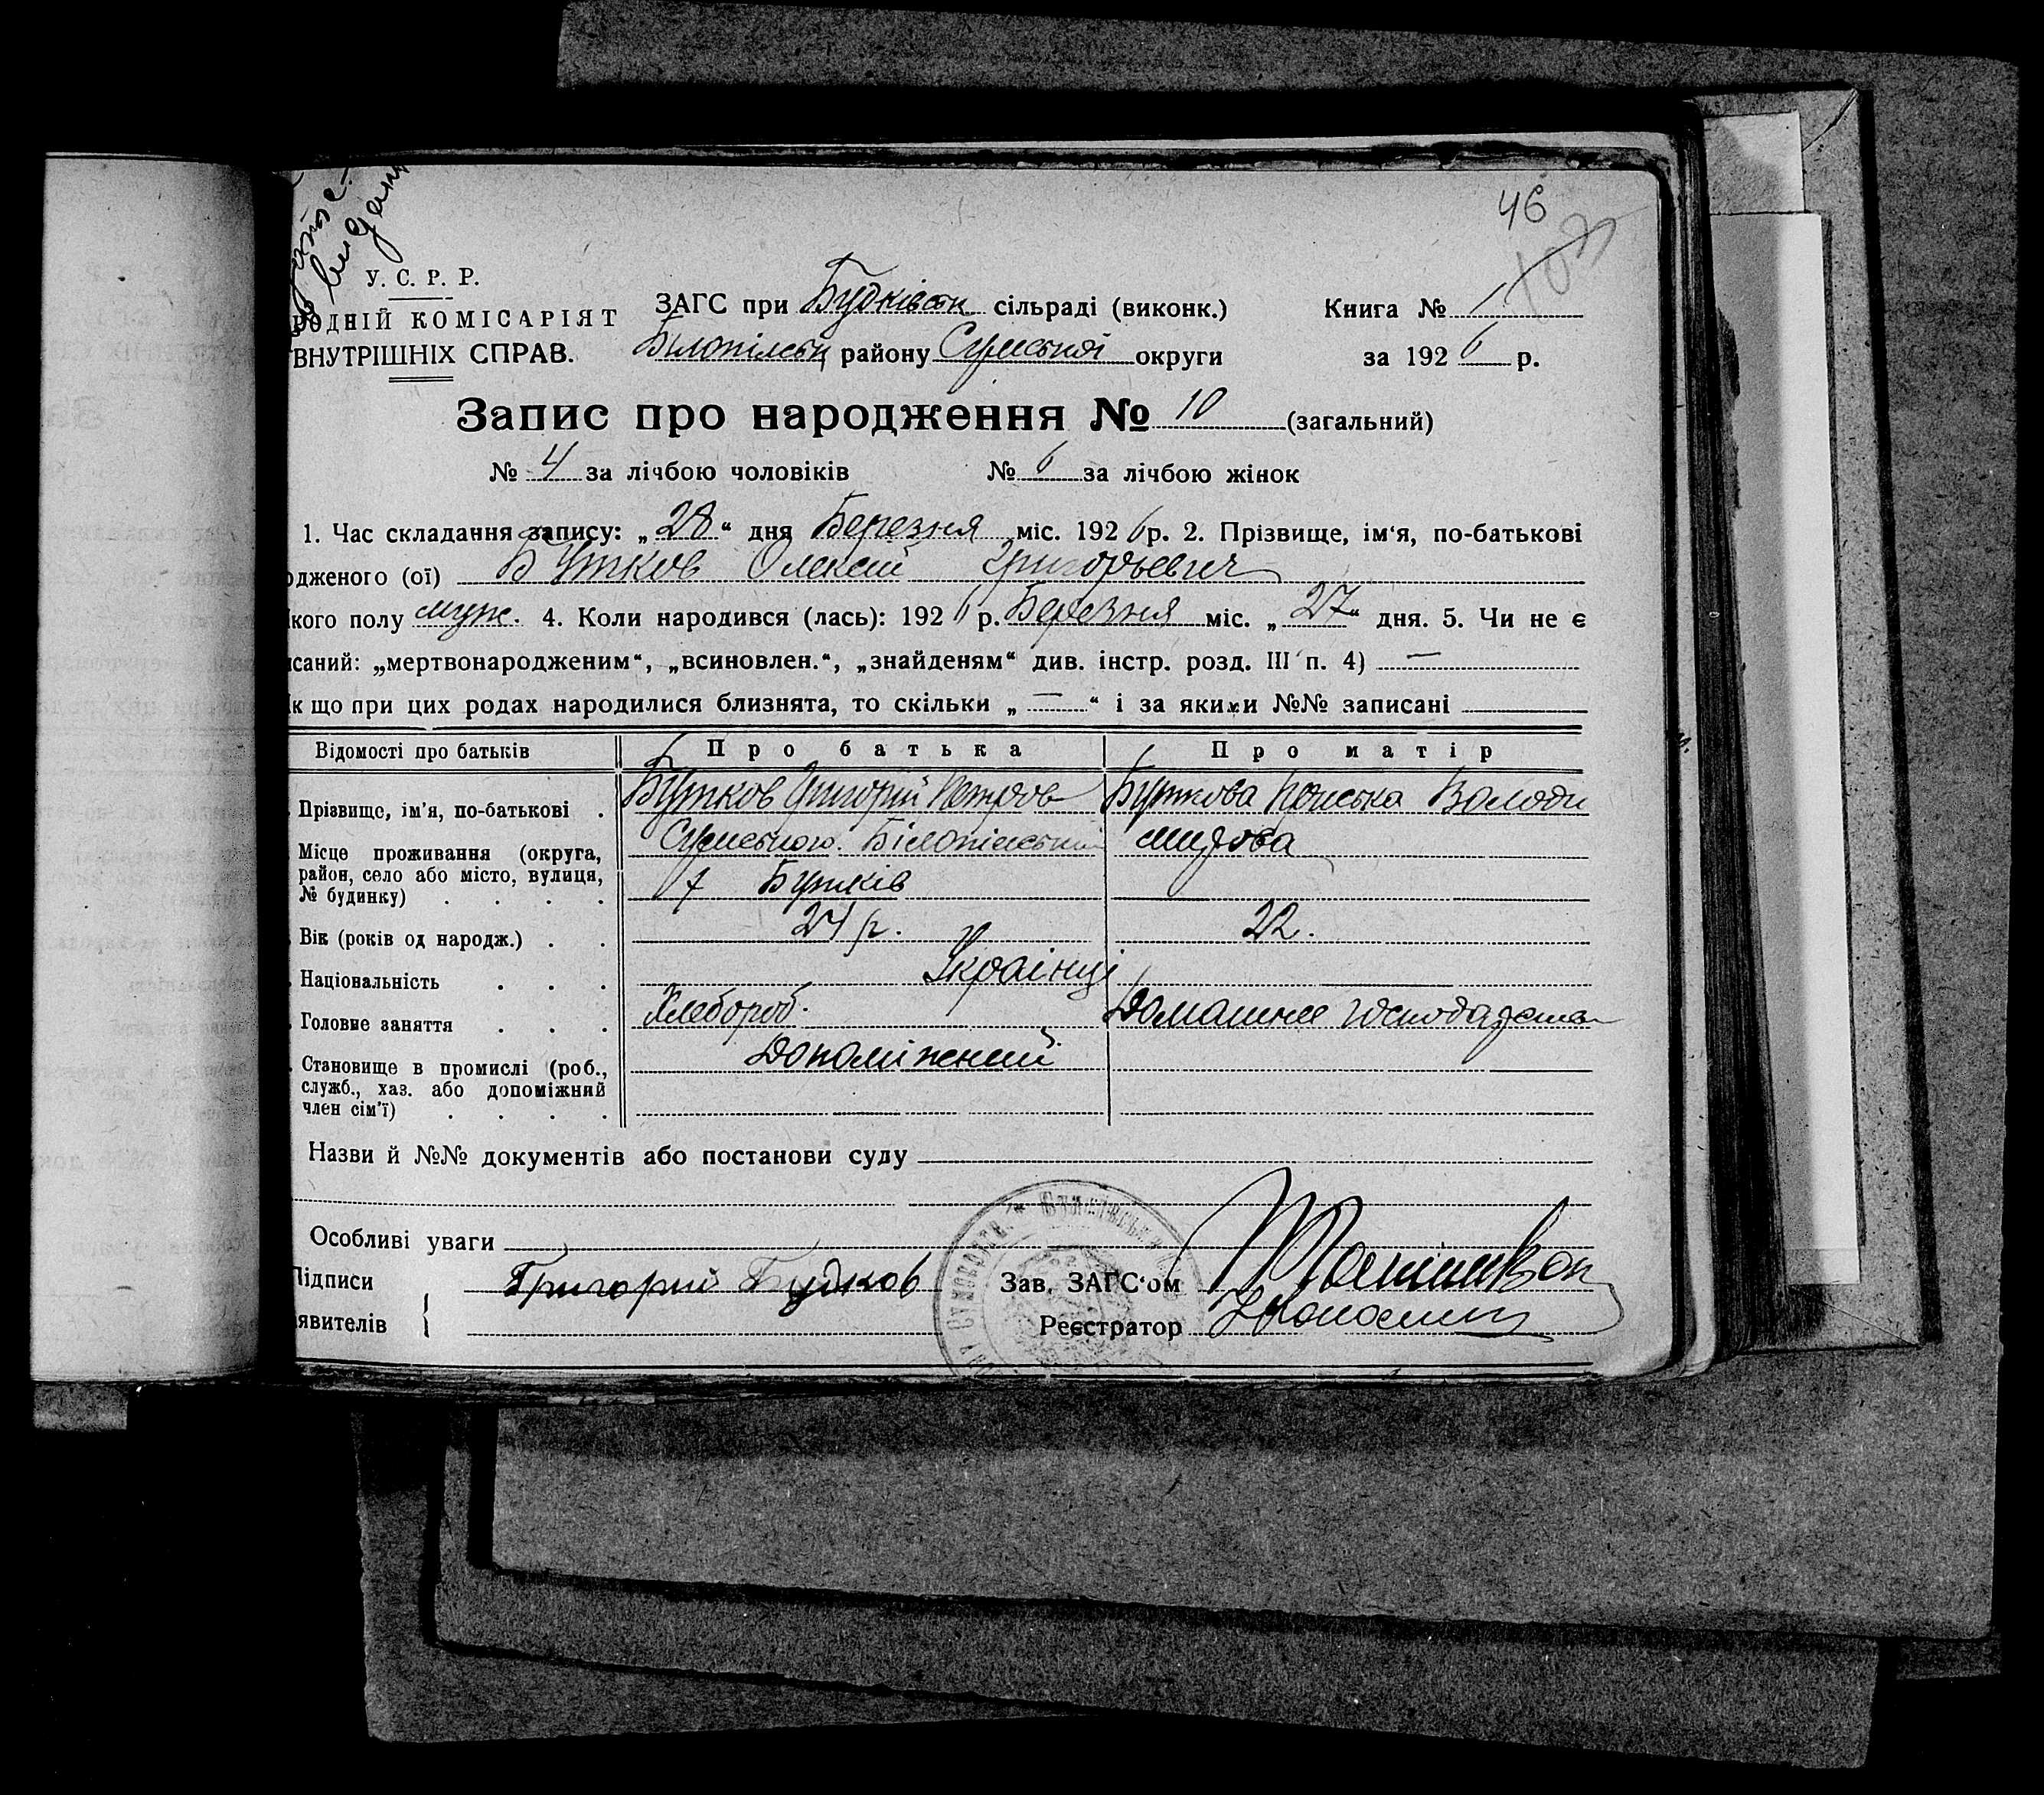 46
У. С. Р. Р.
РОДНІЙ КОМІСАРІЯТ
ВНУТРІШНІХ СПРАВ.
ЗАГС при Будківськ сільраді (виконк.)
Білопільськ району Сумської округи
Книга № 1
за 1926 р.
Запис про народження № 10 (загальний)
№ 4 за лічбою чоловіків № 6 за лічбою жінок
1. Час складання запису: „28“ дня Березня міс. 1926 р. 2. Прізвище, ім‘я, по-батькові
одженого (ої) Бутков Олексій Григорьевич
кого полу муж. 4. Коли народився (лась): 1926 р. Березня міс. „27“ дня. 5. Чи не є
исаний: „мертвонародженим“, „всиновлен.“, „знайденям“ див. інстр. розд. III п. 4) —
к що при цих родах народилися близнята, то скільки „ — “ і за якими №№ записані
Відомості про батьків Про батька Про матір
Прізвище, ім‘я, по-батькові . Бутков Григорій Петров Буткова Володи
мирова
Місце проживання (округа, район, село або місто, вулиця, № будинку) . . . . Сумською. Білопільський
х Бутків
Вік (років од народж.) . . 24 р. 22.
Національність . . . Українці
Головне заняття . . . Хлебороб. Домашнее господарство
Становище в промислі (роб., служб., хаз. або допоміжний член сім‘ї) . . . . Допоміжний
Назви й №№ документів або постанови суду
Особливі уваги
Підписи
аявителів
Григорій Будков
Зав. ЗАГС‘ом
Реєстратор